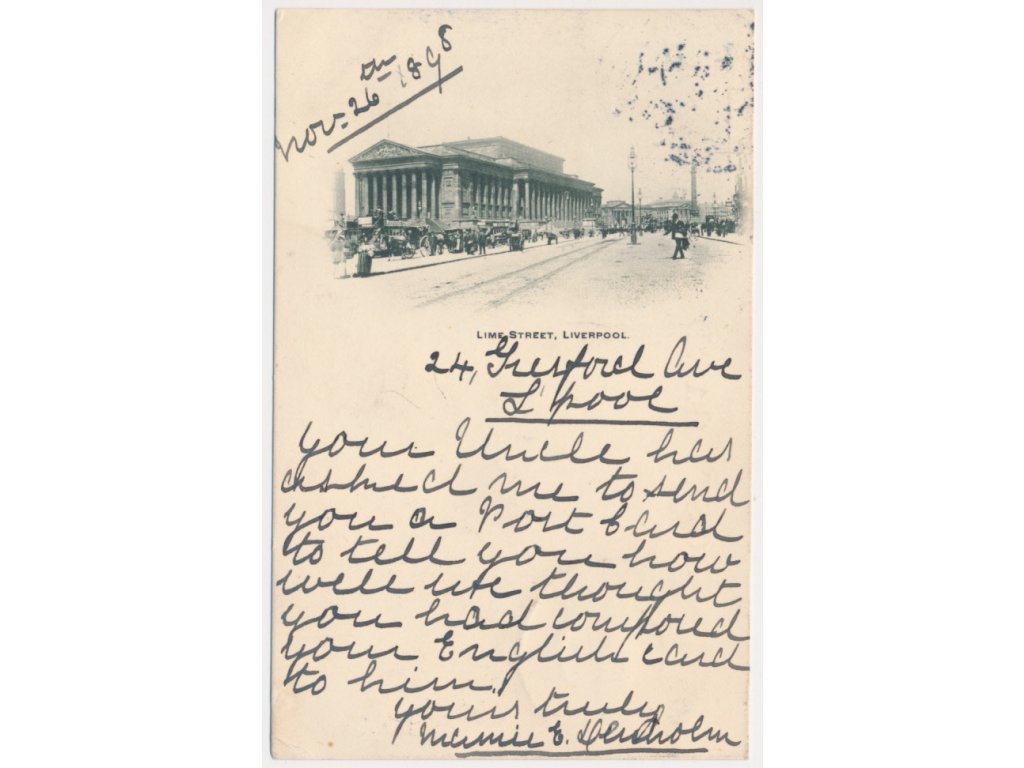 Nov. 26th 1898
LIME STREET, LIVERPOOL.
24, Gresford Ave
L'pool
your Uncle has
asked me to send
you a Post Card
to tell you how
well we thought
you had composed
your English card
to him.
yours truly
Mamie E.